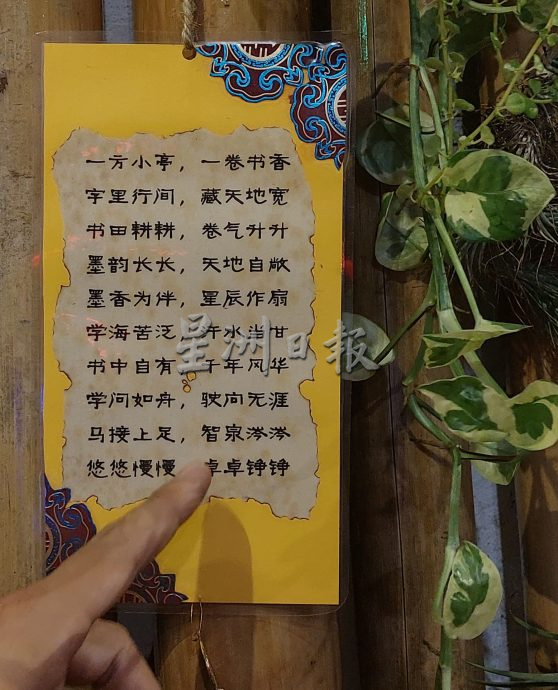 一方小亭，一卷书香
字里行间，藏天地宽
书田耕耕，卷气升升
墨韵长长，天地自敞
墨香为伴，星辰作扇
学海苦泛，许水当甘
书中自有，千年风华
学问如舟，驶向无涯
马接上足，智泉涔涔
悠悠慢慢，卓卓铮铮
星洲日报